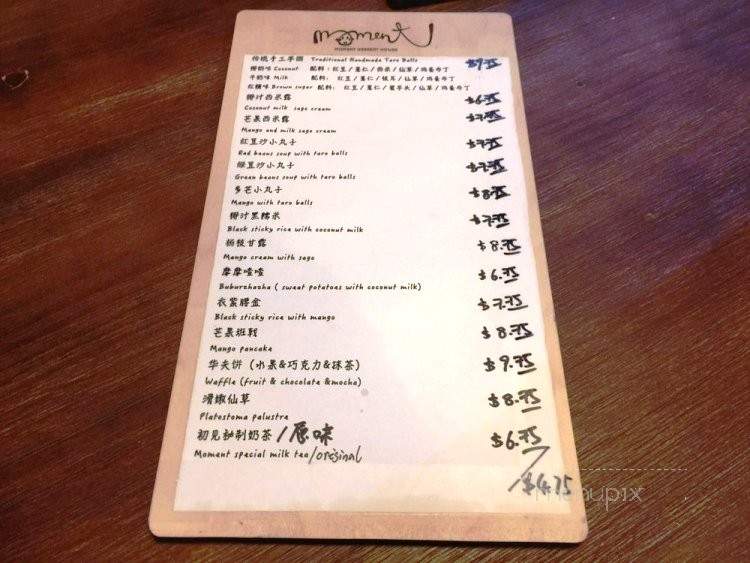 moment
MOMENT DESSERT HOUSE
传统手工芋圆 Traditional Handmade Taro Balls $9.75
椰奶味 Coconut 配料：红豆/薏仁/西米/仙草/鸡蛋布丁
牛奶味 Milk 配料：红豆/薏仁/银耳/仙草/鸡蛋布丁
红糖味 Brown sugar 配料：红豆/薏仁/蜜芋头/仙草/鸡蛋布丁
椰汁西米露 $6.75
Coconut milk sago cream
芒果西米露 $7.75
Mango and milk sago cream
红豆沙小丸子 $7.75
Red beans soup with taro balls
绿豆沙小丸子 $7.75
Green beans soup with taro balls
多芒小丸子 $8.75
Mango with taro balls
椰汁黑糯米 $7.75
Black sticky rice with coconut milk
杨枝甘露 $8.75
Mango cream with sago
摩摩喳喳 $6.75
Buburzhazha ( sweat potatoes with coconut milk)
衣裳腰盒 $7.75
Black sticky rice with mango
芒果班戟 $8.75
Mango pancake
华夫饼（水果&巧克力&抹茶） $9.75
Waffle (fruit & chocolate &mocha)
滑嫩仙草 $8.75
Platostoma palustre
初见秘制奶茶 /原味 $6.75
Moment special milk tea /original
/$4.75
menupix